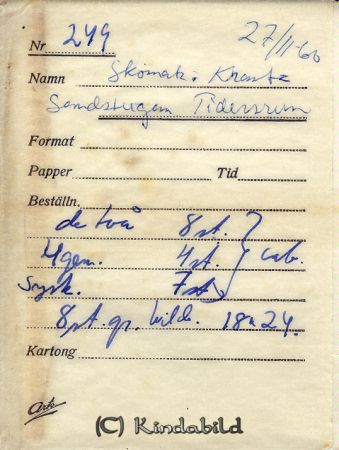 27/11-66
Nr 249
Namn Skomak. Krantz
Sandstugan Tidersrum
Format
Papper Tid
Beställn.
de två 8 st.
4 gen. 4 st. cab.
Sysk. 7 st
8 st. gr. bild. 18x24.
Kartong
Arte
(C) Kindabild